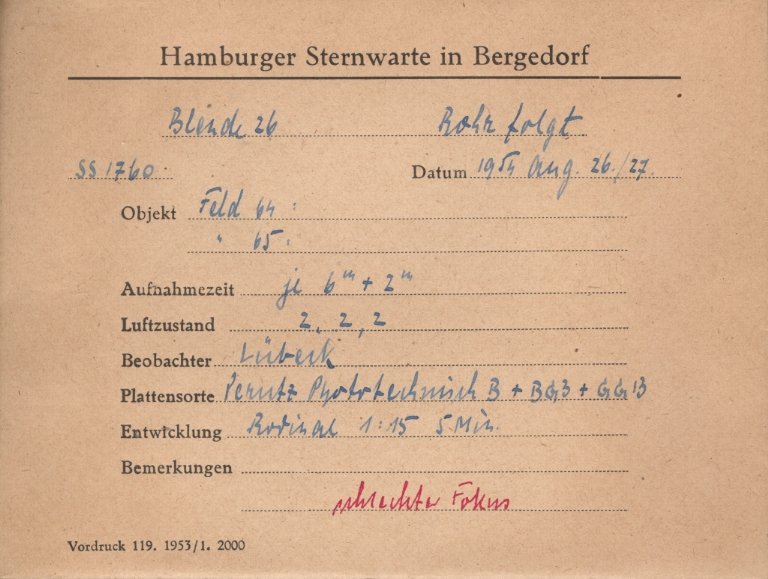 Hamburger Sternwarte in Bergedorf
Blende 26 Rohr folgt
SS 1760 Datum 1954 Aug. 26./27.
Objekt Feld 64 :
" 65 :
Aufnahmezeit je 6m + 2m
Luftzustand 2, 2, 2
Beobachter Lübeck
Plattensorte Perutz Phototechnisch B + BG3 + GG13
Entwicklung Rodinal 1:15 5 Min.
Bemerkungen
schlechter Fokus
Vordruck 119. 1953/1. 2000